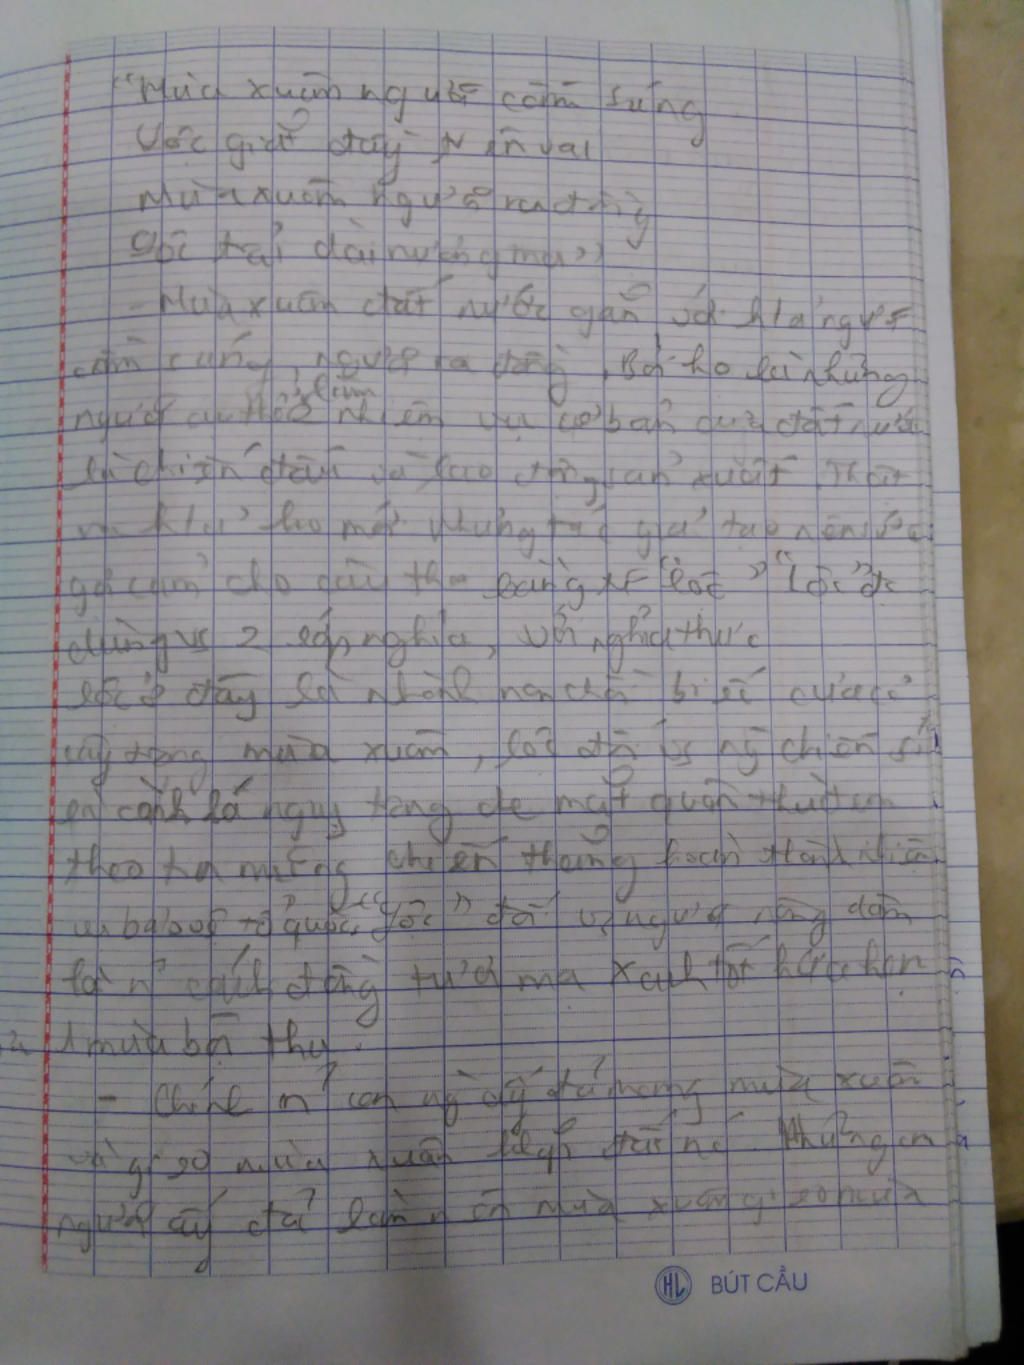 "Mùa xuân người cầm súng
Lộc giắt đầy trên vai
Mùa xuân người ra đồng
Lộc trải dài nương mạ"
- Mùa xuân đất nước gắn với h/a người
cầm súng, người ra đồng. Bởi họ là những
người làm nhiệm vụ cơ bản của đất nước
là chiến đấu và lao động sản xuất. Thật
mới nhưng tác giả tạo nên sức
gợi cảm cho câu thơ bằng "lộc" "Lộc" đc
dùng vs 2 lớp nghĩa, với nghĩa thực
lộc ở đây là nhành non chồi biếc của cỏ
cây trong mùa xuân, lộc đối vs ng chiến sĩ
là cành lá ngụy trang che mắt quân thù
theo chiến thắng hoàn thành nhiệm
vụ bảo vệ tổ quốc, "lộc" đối vs người nông dân
là n~ cánh đồng tươi mạ xanh tốt hứa hẹn
1 mùa bội thu.
- Chính n~ con ng ấy đã mang mùa xuân
và gieo mùa xuân khắp đất nc. Những con
người ấy đã làm nên mùa xuân gieo mùa
HL BÚT CẦU